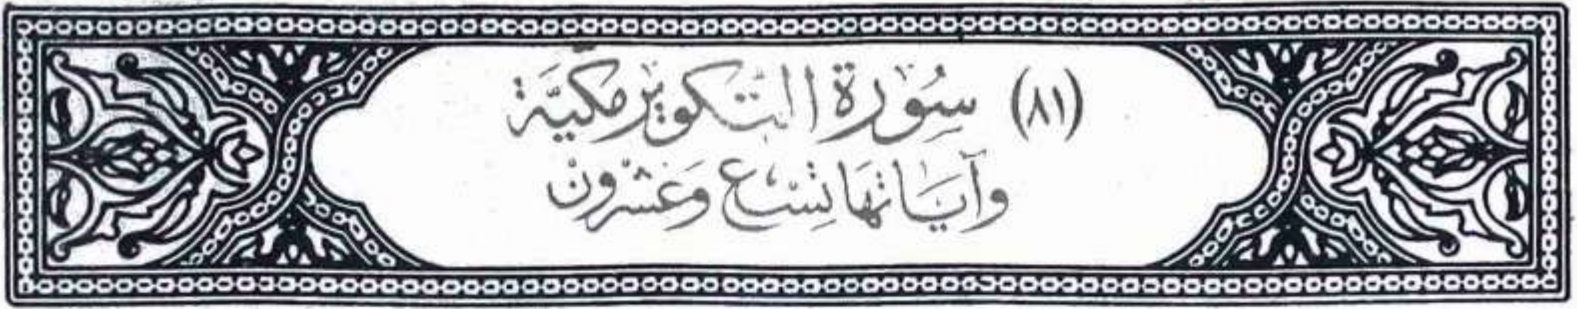 (٨١) سُورَة التَّكوير مَكيَّة
وآيَاتهَا تِسْع وَعِشْرُون